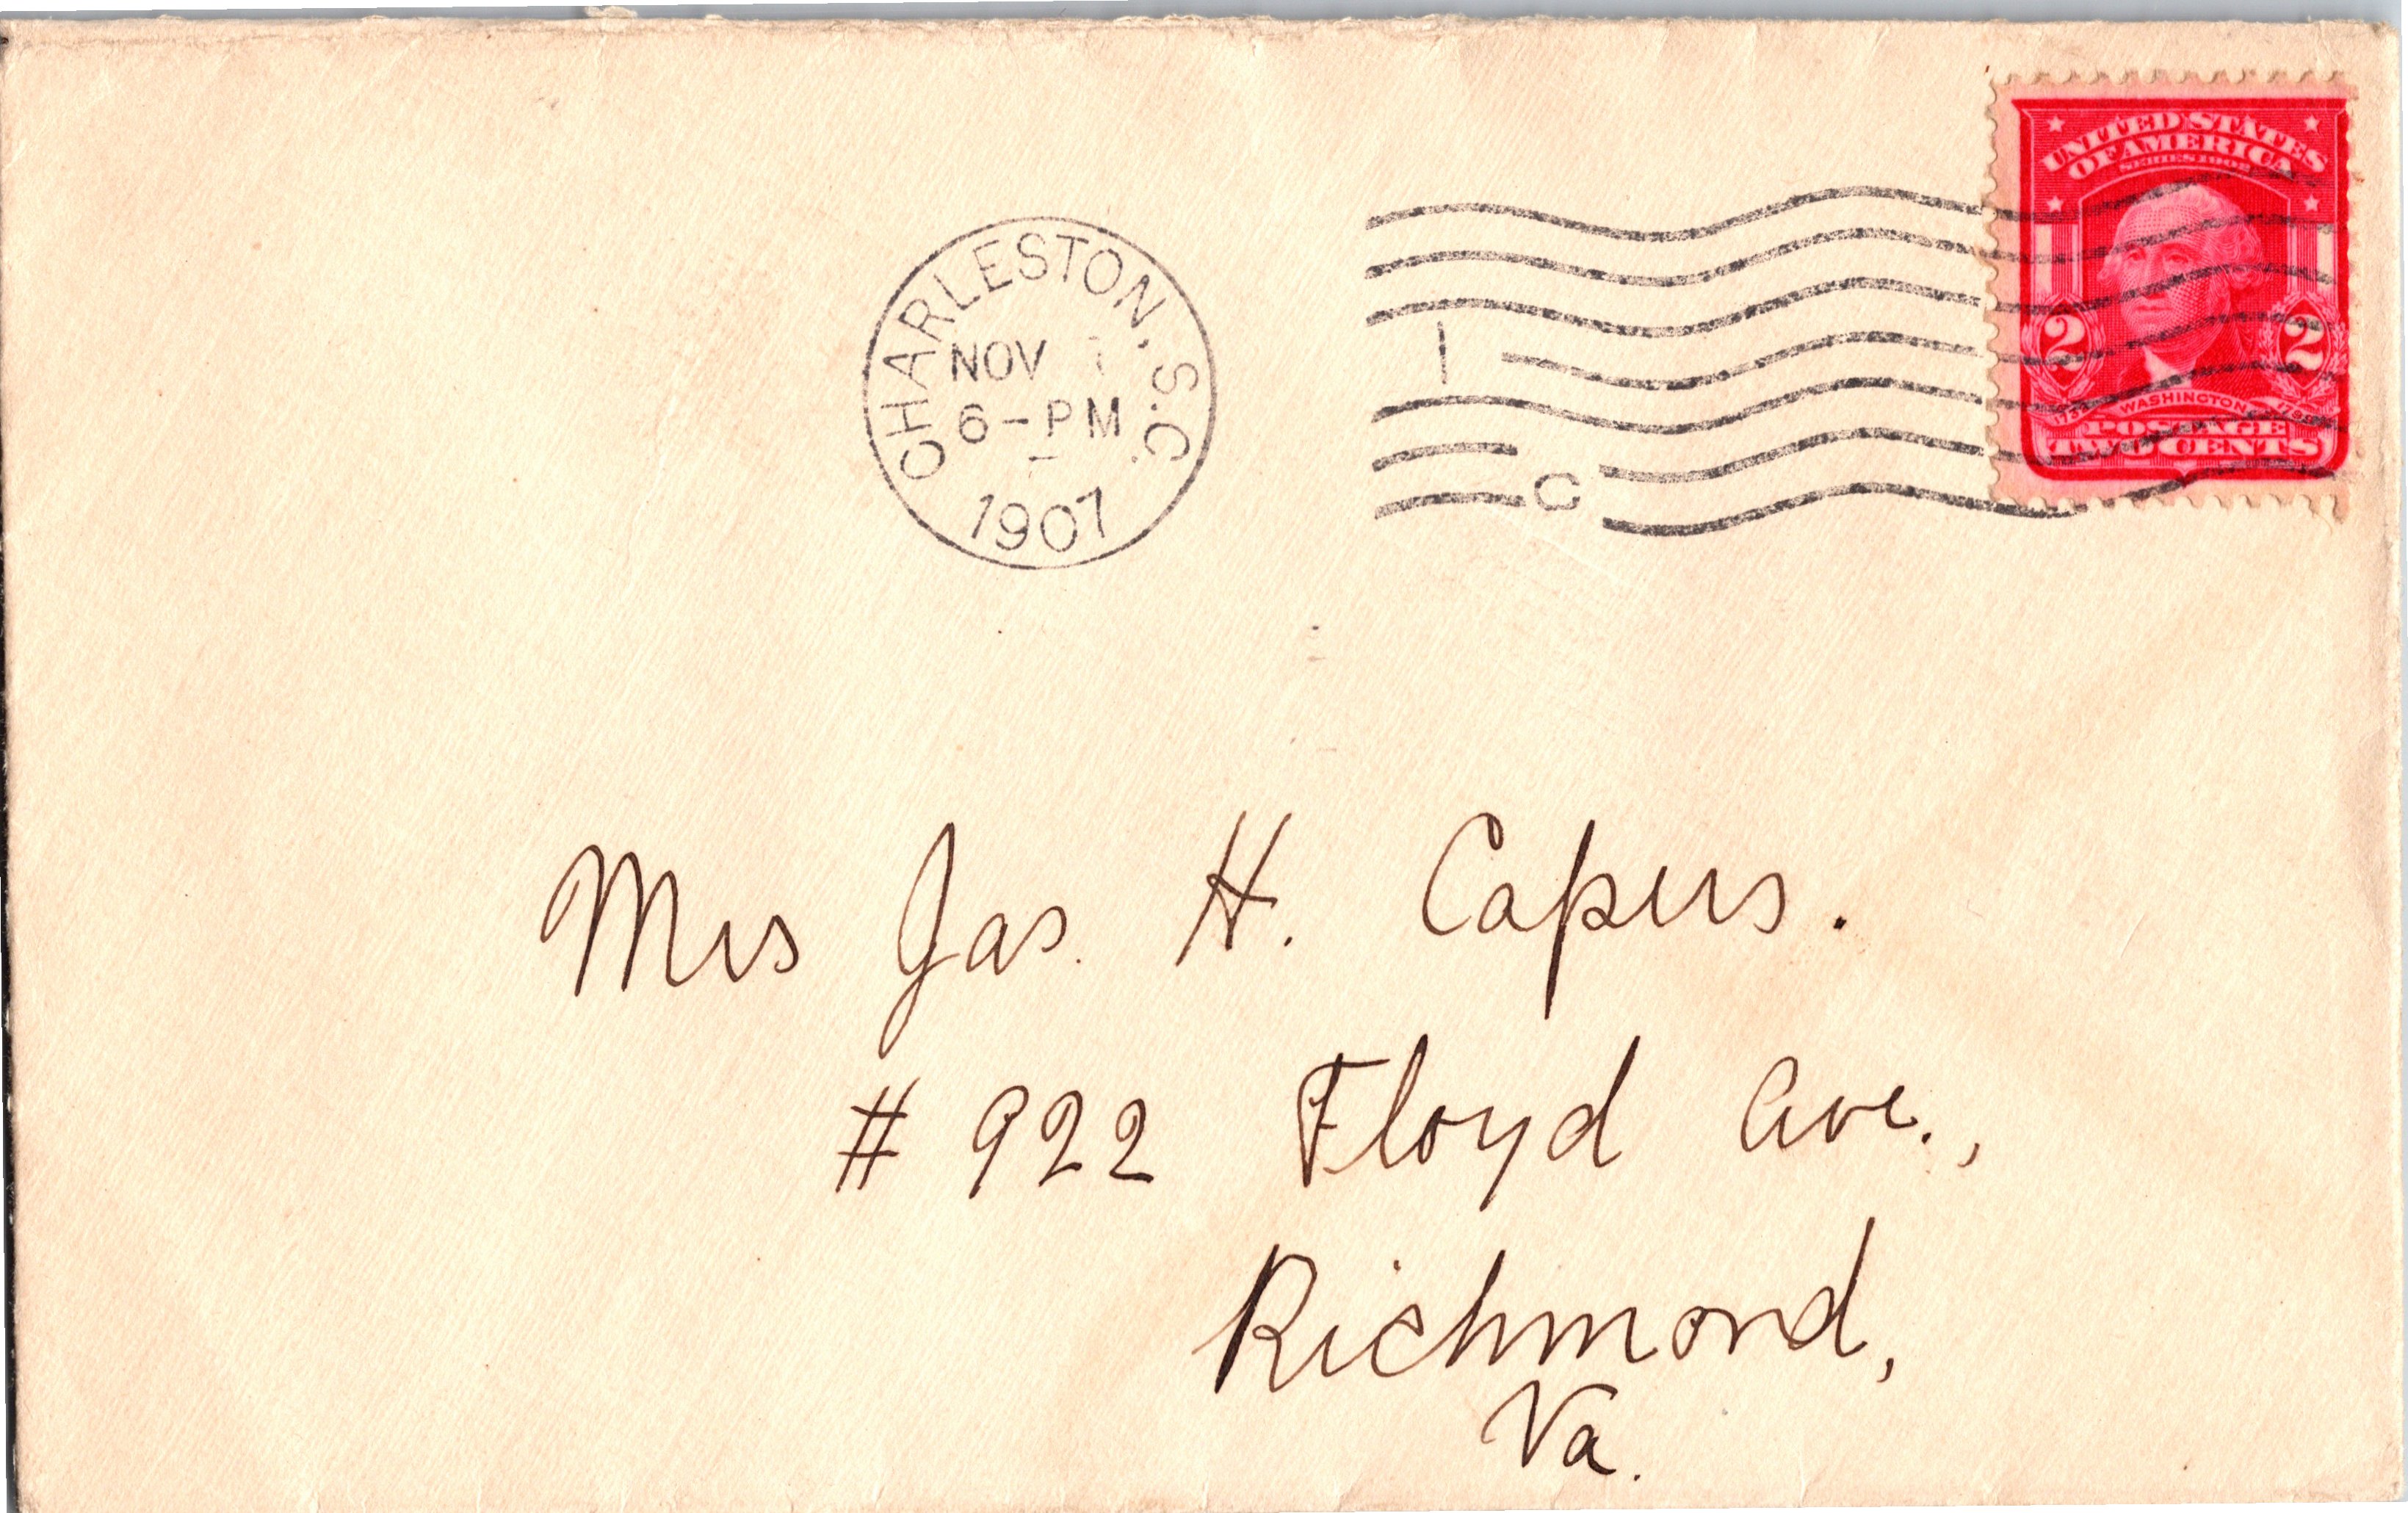 CHARLESTON, S.C.
NOV
6-PM
1907
1
C
UNITED STATES
OF AMERICA
SERIES 1902
2 2
WASHINGTON
POSTAGE
TWO CENTS
Mrs Jas. H. Capers.
# 922 Floyd Ave.,
Richmond,
Va.